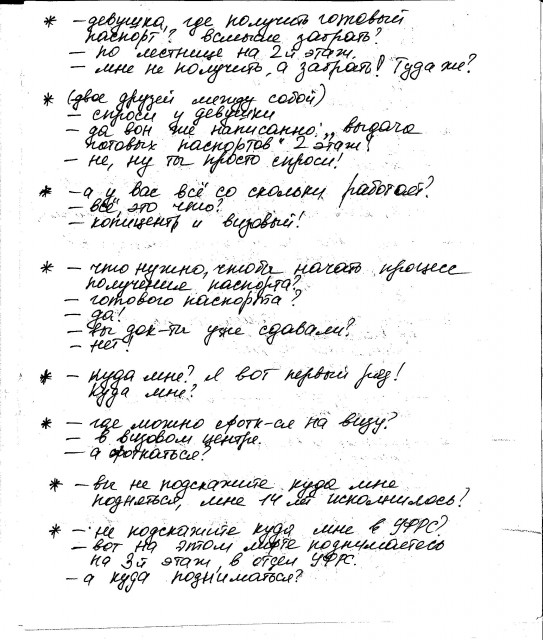 * – девушка, где получить готовый
паспорт? в смысле забрать?
– по лестнице на 2й этаж.
– мне не получить, а забрать! Туда же?
* (двое друзей между собой)
– спроси у девушки
– да вон же написанно: „выдача
готовых паспортов" 2 этаж!
– не, ну ты просто спроси!
* – а у вас всё со скольки работает?
– „всё" это что?
– копицентр и визовый!
* – что нужно, чтобы начать процесс
получения паспорта?
– готового паспорта?
– да!
– вы док-ты уже сдавали?
– нет!
* – куда мне? Я вот первый раз!
Куда мне?
* – где можно фотк-ся на визу?
– в визовом центре.
– а фоткаться?
* – вы не подскажите куда мне
подняться, мне 14 лет исполнилось?
* – не подскажите куда мне в УФРС?
– вот на этом лифте поднимаетесь
на 3й этаж, в отдел УФРС.
– а куда подниматься?